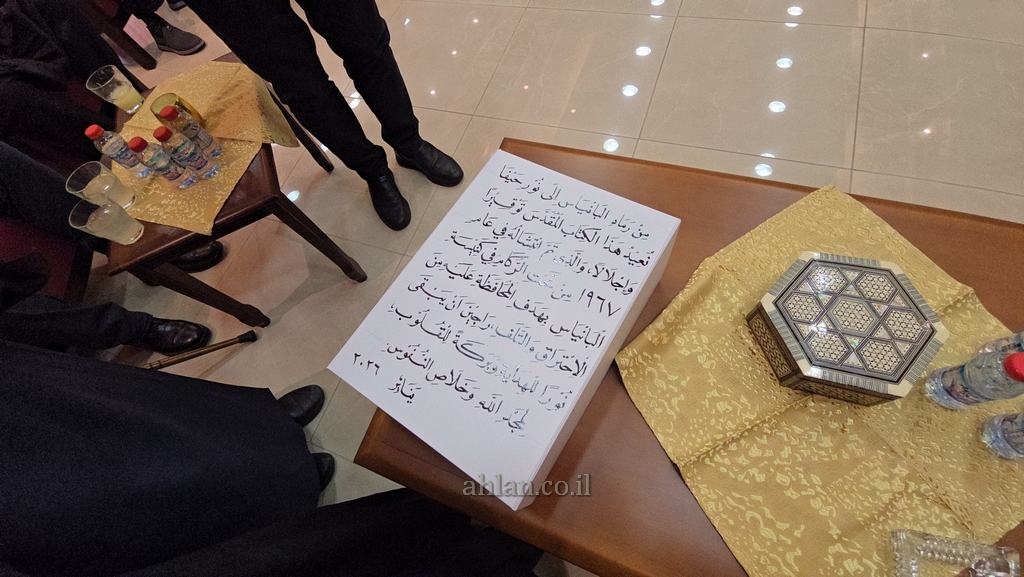 مِنْ رَمَادِ البَانْيَاسِ إِلَى نُورِ حَنِيفَا
نُعِيدُ هَذَا الكِتَابَ المُقَدَّسَ تَوْقِيرًا
وَإِجْلَالًا، وَالَّذِي تَمَّ انْتِشَالُهُ فِي عَامِ
١٩٦٧ مِنْ تَحْتِ الرُّكَامِ فِي كَنِيسَةِ
البَانْيَاسِ بِهَدَفِ المُحَافَظَةِ عَلَيْهِ مِنَ
الاحْتِرَاقِ وَالتَّلَفِ، رَاجِينَ أَنْ يَبْقَى
نُورًا لِلْهِدَايَةِ وَبَرَكَةً لِلْقُلُوبِ،
لِمَجْدِ اللهِ وَخَلَاصِ النُّفُوسِ.
يَنَايِرْ ٢٠٢٦
ahlan.co.il